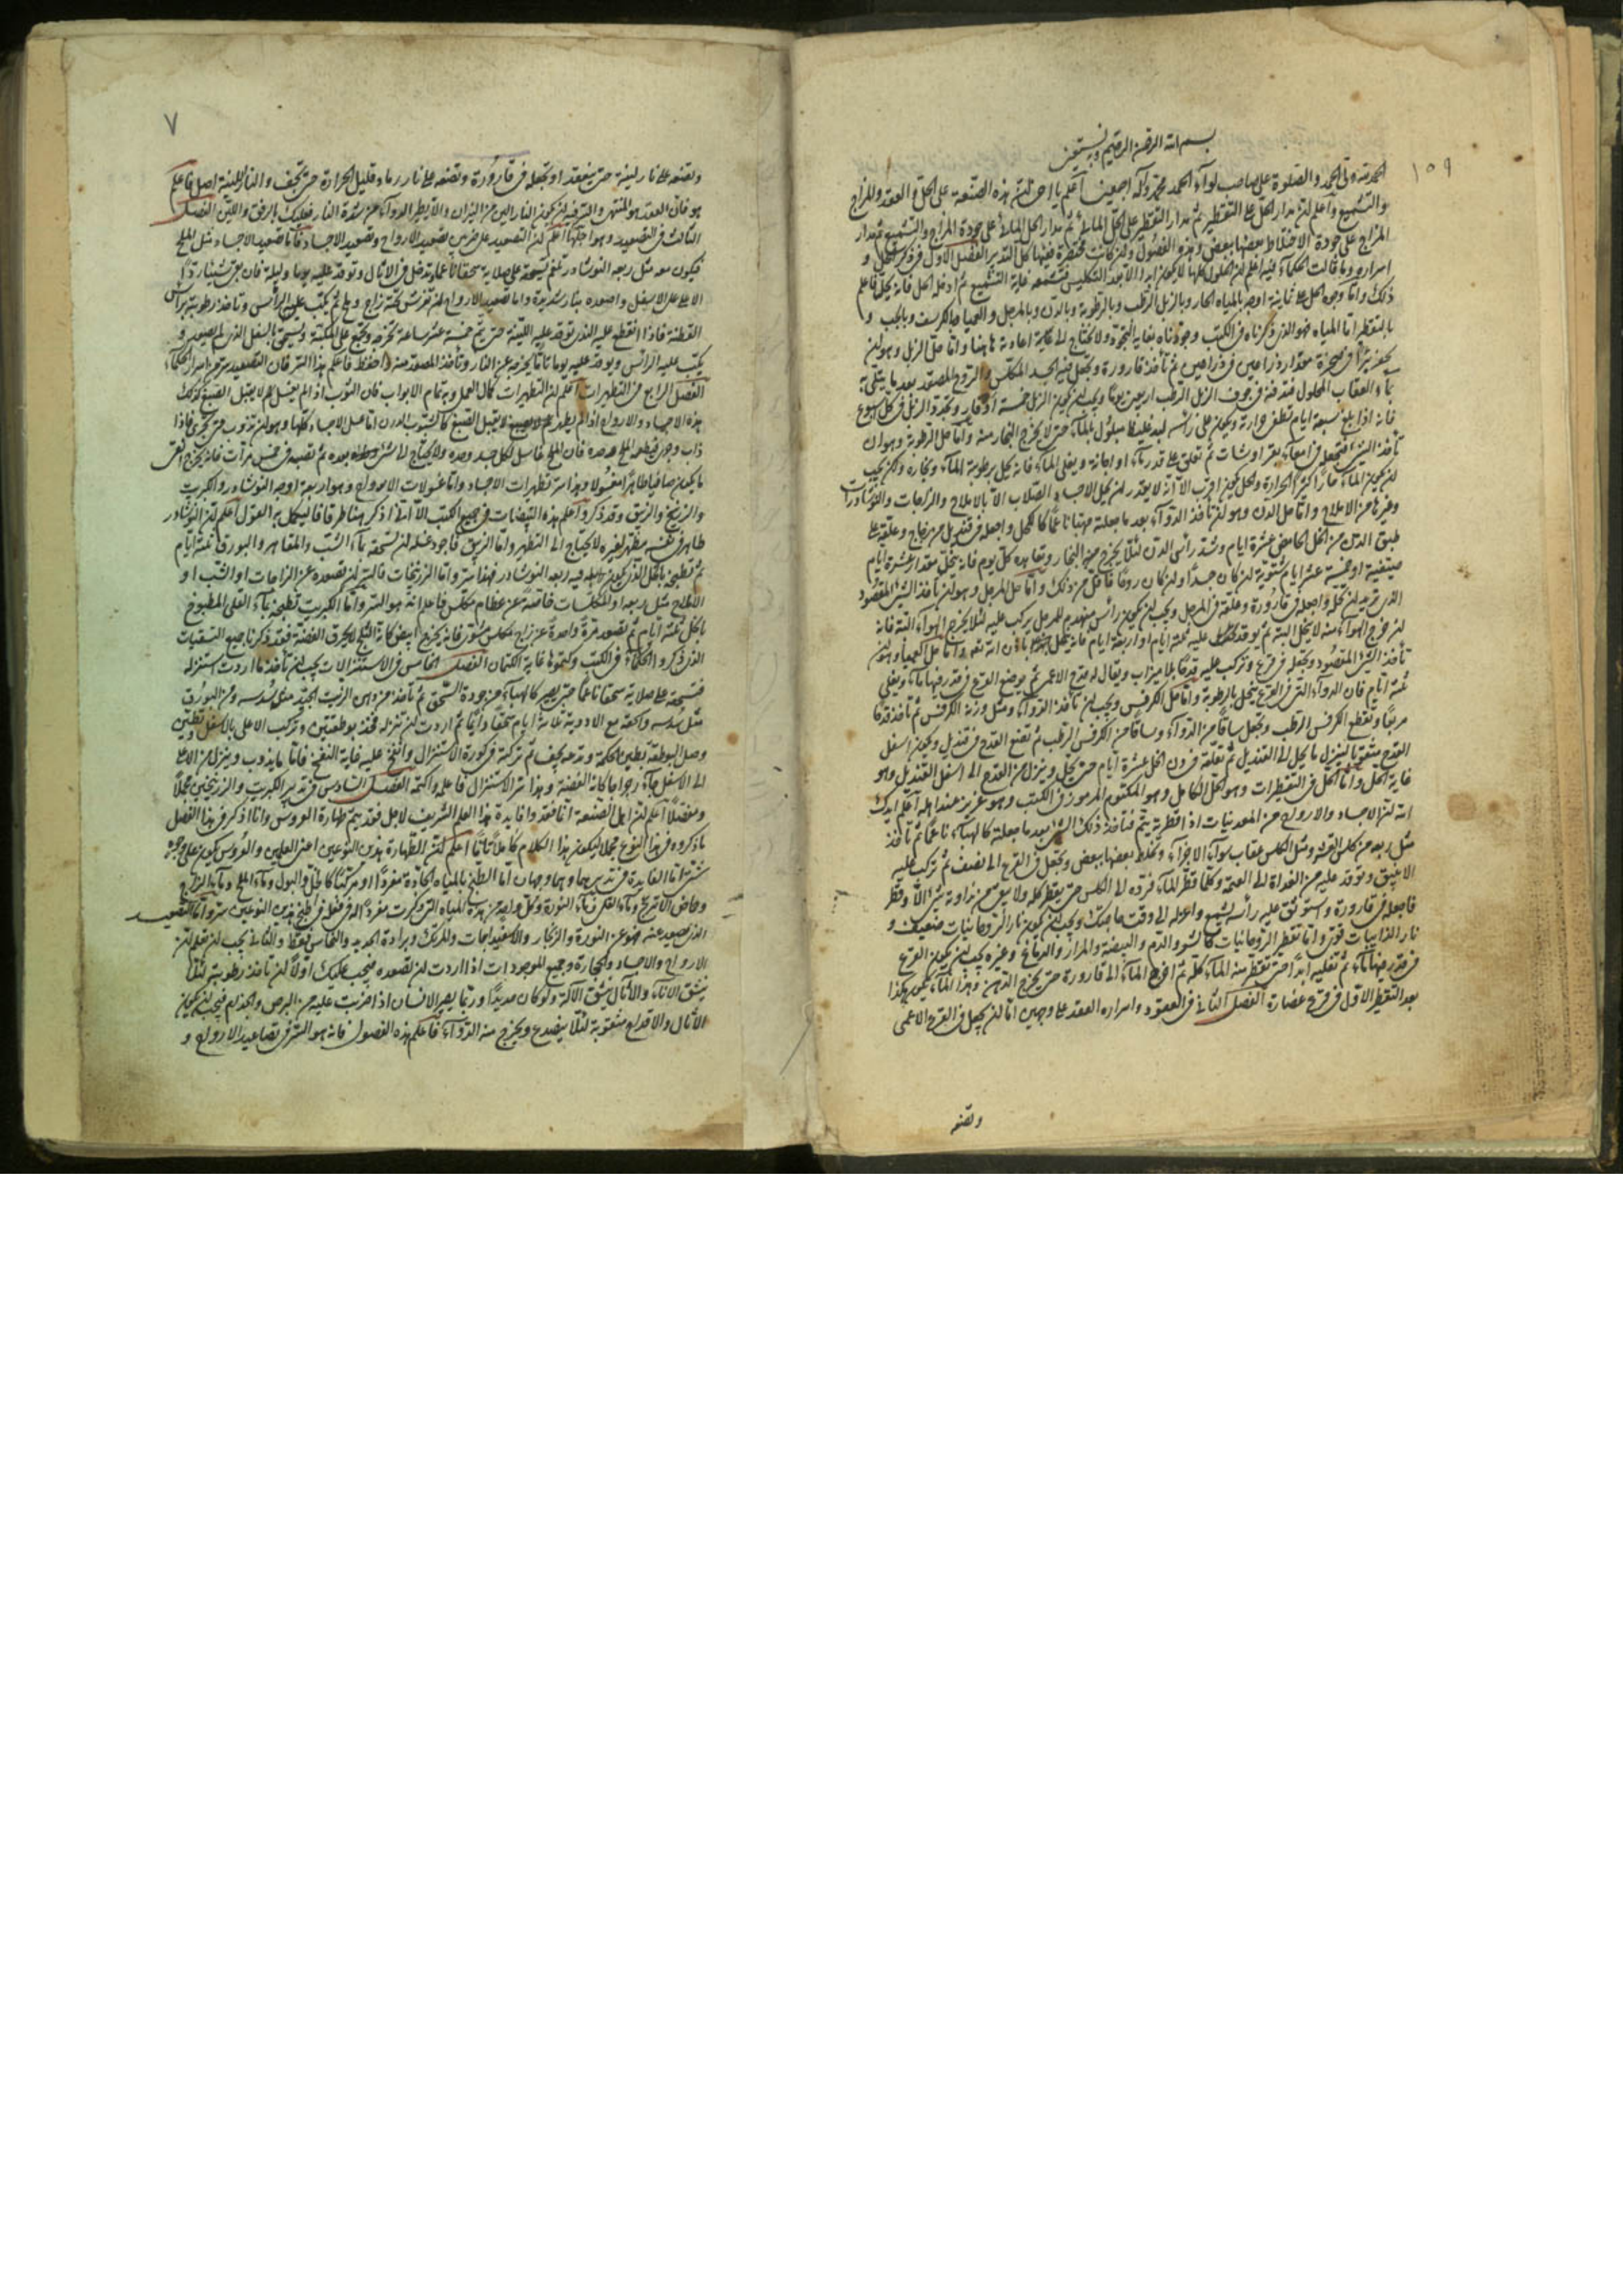 ١٥٩
بسم الله الرحمن الرحيم وبه نستعين
الحمد لله ولى الحمد والصلوة على صاحب لوآء الحمد محمد وآله اجمعين اعلم يا اخى لن هذه الصنعة على الحل والعقد والمزاج
والتشميع واعلم لن مدار الحل على التقطير ثم مدار التقطير على الحل المائى ثم مدار الحل المائى على جودة المزاج والتشميع ثم مدار
المزاج على جودة الاختلاط بعضها ببعض وهذه الفصول ولن كانت مختصرة ففيها كل التدبير الفصل الاول فى ذكر الحل و
اسراره وما قالت الحكمآء فيه اعلم لن الحلول كلها لا يكون ابدا الا بعد التكليس فتشمعه غاية التشميع ثم ادخله الحل فانه ينحل فاعلم
ذلك واما وجوه الحل على ثمانية اوجه بالمياه الحار وبالزبل الرطب وبالرطوبة وبالدن وبالمرجل والعميا وبالكرفس وبالجب و
بالتقطير اما المياه فهو الذى ذكرناه فى الكتب وجودناه بغاية الجودة ولا يحتاج الى اعادته هاهنا واما حل الزبل وهو لن
يحفر بئرا فى صخرة مقدار ذراعين فى ذراعين ثم تأخذ قارورة وتجعل فيه الجسد المكلس والروح المصعد بعد ما
بمآء العقاب المحلول فتدفنه فى جوف الزبل الرطب اربعين يوما ويجب لن يكون الزبل خمسة اوقار وتجدد الزبل فى كل اسبوع
فانه اذا بلغ سبعة ايام تنطفى حرارته ويكون على رأسه لبد غليظ مبلول بالمآء حتى لا يخرج البخار منه واما حل الرطوبة وهو ان
تأخذ الشئ فتجعل فى امعآء بقر او شاة ثم تعلق على قدر مآء او اجانة ويغلى المآء فانه يحل برطوبة المآء وبخاره ولكن يجب
لن يكون المآء حارا اكثر الحرارة والحل يكون اقرب الا انه لا يقدر لن يحل الاجساد الصلاب الا بالاملاح والزاجات والنوشادرات
وغيرها من الاملاح واما حل الدن وهو لن تأخذ الدوآء بعد ما جعلته مهيئا ناعما كالكحل واجعله فى قنديل من زجاج وعلقه على
طبق الدن من الخل الحامض عشرة ايام وشد رأس الدن لئلا يخرج منه البخار وتعاهده كل يوم فانه ينحل مقدار عشرة ايام
صيفية او خمسة عشر ايام شتوية لن كان جسدا ولن كان روحا فاقل من ذلك واما حل المرجل وهو لن تأخذ الشئ المقصود
الذى تريد لن تحله واجعله فى قارورة وعلقه فى المرجل ويجب لن يكون رأس مهندم للمرجل يركب عليه لئلا يخرج الهوآء البتة فانه
لن خرج الهوآء منه لا ينحل البتة ثم يوقد عليه ثلثة ايام او اربعة ايام فانه ينحل باذن الله تعالى واما حل العميا وهو لن
تأخذ الشئ المقصود وتجعل فى قرع وتركب عليه قدحا بلا ميزاب ويقال له قدح الاعمى ثم يوضع القرع فى قدر فيها مآء ويغلى
ثلثة ايام فان الدوآء التى فى القرع ينحل بالرطوبة واما حل الكرفس ويجب لن تأخذ الدوآء ومثل وزنه الكرفس ثم تأخذ قدحا
مربعا وتقطع الكرفس الرطب وتجعل سافا من الدوآء وسافا من الكرفس الرطب ثم تضع القدح فى قنديل ويكون اسفل
القدح مثقبا لينزل ما ينحل الى القنديل ثم تعلقه فى دن الخل عشرة ايام حتى ينحل وينزل من القدح الى اسفل القنديل وهو
غاية الحل واما الحل فى التقطيرات وهو الحل الكامل وهو المكتوم المرموز فى الكتب وهو عزيز عند اهله اعلم ايدك
الله لن الاجساد والارواح من المعدنيات اذا قطرته يتم فتأخذ ذلك الشئ بعد ما جعلته كالهبآء ناعما ثم تأخذ
مثل ربعه من كلس القشر ومثل الكلس عقاب سوآء الاجزآء وتخلط بعضها ببعض وتجعل فى القرع الى نصف ثم تركب عليه
الانبيق وتوقد عليه من الغداة الى العتمة وكلما قطر المآء فرده الى الكلس حتى يقطر كله ولا يبقى من نداوته شئ الا وقطر
فاجعله فى قارورة واستوثق عليه رأسه بشمع واعزله الى وقت حاجتك ويجب لن يكون نار الروحانيات ضعيف و
نار الذايبات قوى واما تقطير الروحانيات كالشعر والدم والبيضة والمرار والدماغ وغيره يجب لن يكون القرع
فى قدر فيها مآء ثم تغليه ابدا حتى تقطر منه المآء كله ثم افرغ المآء الى قارورة حتى يخرج الدهن وهذا المآء يكون هكذا
بعد التقطير الاول فى قرع غضارة الفصل الثانى فى العقود واسراره العقد على وجهين اما لن يجعل فى القدح الاعمى
وتضعه
٧
وتضعه على نار لينة حتى ينعقد او تجعله فى قارورة وتضعه على نار رماد قليل الحرارة حتى يجف والنار اللينة اصل فاعلم
هو فان العقد هو المنتهى والترفية لن يكون النار الين من الميزان والا يطير الدوآء من شدة النار فعليك بالرفق واللين الفصل
الثالث فى التصعيد وهو اجلها اعلم لن التصعيد على ضربين تصعيد الارواح وتصعيد الاجساد فاما تصعيد الاجساد مثل الملح
فيكون معه مثل ربعه النوشادر تلغم تسحقه على صلاية سحقا ناعما وتدخل فى الاثال وتوقد عليه يوما وليلة فان بقى شيئا رد
الاعلى على الاسفل واصعده بنار شديدة واما تصعيد الارواح لن تفرش تحته زاج وملح ثم يكب عليه الرأس وتأخذ رطوبته برأس
القطنة فاذا انقطع عليه الندى توقد عليه اللينة حتى يتم خمسة عشر ساعة تخرجه وتجمع على المكبة وتسحق بالسفل الذى لم يصعد و
يكب عليه الرأس ويوقد عليه يوما تاما يخرجه عن النار وتأخذ المصعد منه واحفظ فاعلم هذا السر فان التصعيد سر من اسرار الحكمآء
الفصل الرابع فى التطهيرات اعلم لن التطهيرات كمال العمل وبه تمام الابواب فان الثوب اذا لم يغسل لا يقبل الصبغ كذلك
هذه الاجساد والارواح اذا لم يطهر لا يقبل الصبغ كالثوب الدرن اما غسل الاجساد كلها وهو لن تذوب حتى يجرى فاذا
ذاب وجرى فيطعمه الملح وحده فان الملح غاسل لكل جسد وحده ولا يحتاج الى شئ بعده ثم تصبه فى خمس مرات فانه يخرج النقى
ما يكون صافيا طاهرا مغسولا وهذا سر تطهيرات الاجساد واما غسولات الارواح وهو اربعة اوجه النوشادر والكبريت
والزرنيخ والزيبق وقد ذكروا اعلم هذه التبيضات فى جميع الكتب الا انى اذكر هنا طرقا فاليكمل به القول اعلم لن النوشادر
طاهر فى نفسه مطهر لغيره لا يحتاج الى التطهير واما الزيبق فاجود غسله لن تسحقه بمآء الشب والمقاطر والبورق ثلثة ايام
ثم تطبخه بالخل الذى يكون فيه ربعه النوشادر فهذا سر واما الزرنيخات فالسر لن تصعده عن الزاجات او الشب او
الاملاح مثل ربعه او المكلسات خاصة عن عظام مكلس فاعلم انه هو السر واما الكبريت تطبخه بمآء القلى المطبوخ
بالخل ثلثة ايام ثم تصعد مرة واحدة عن زاج مكلس مشوى فانه يخرج ابيض كانه الثلج لا يحرق الفضة فقد ذكرنا جميع التنقيات
الذى ذكروا الحكمآء فى الكتب وكتموها غاية الكتمان الفصل الخامس فى الاستنزالات يجب لن تأخذ ما اردت استنزاله
فتسحقه على صلاية سحقا ناعما حتى يصير كالهبآء من جودة السحق ثم تأخذ من دهن الزيت الجيد مثل سدسه ومن البورق
مثل سدسه واسحقه مع الادوية ثلاثة ايام سحقا دائما ثم اردت لن تنزله فخذ بوطقتين وتركب الاعلى بالاسفل وتطين
وصل البوطقة بطين الحكمة وتدعه يجف ثم تركبه فى كورة الاستنزال وانفخ عليه غاية النفخ فانما ما يذوب وينزل من الاعلى
الى الاسفل جآء رجراجا كانه الفضة وهذا سر الاستنزال فاعلم واكتمه الفصل السادس فى تدبير الكبريت والزرنيخين مجملا
ومفصلا اعلم لن اهل الصنعة انما فقدوا فايدة هذا العلم الشريف لاجل فقد يتم طهارة العروس وانا اذكر فى هذا الفصل
ما ذكروه فى هذا النوع مجملا ليكون هذا الكلام كاملا تاما اعلم لن الطهارة هذين النوعين اعنى العلمين والعروس يكون على وجوه
شتى اما الفايدة فى تدبيرهما وهما وجهان اما الطبخ بالمياه الحادة مفردا او مركبا كالخل والبول ومآء الملح ومآء الزاج
وحماض الاترج ومآء القلى ومآء النورة وكل واحد من هذه المياه التى ذكرت مفردا له فى فعله فى طبخ هذين النوعين سر واما التصعيد
الذى يصعد عنه فهو عن النورة والزنجار والاسفيداجات والمرتك وبرادة الحديد والنحاس فقط والثانى يجب لن تعلم لن
الارواح والاجساد والحجارة وجميع الموجودات اذا اردت لن تصعده فيجب عليك اولا لن تأخذ رطوبته لئلا
ينشق الاناء والاثال ينشق الآلة ولو كان حديدا وربما يصير الانسان اذا ضربت عليه من البرص والجذام فيجب لن يكون
الاثال والاقداح مثقوبة لئلا ينصدع ويخرج منه الدوآء فاعلم هذه الفصول فانه هو السر فى تصاعيد الارواح و